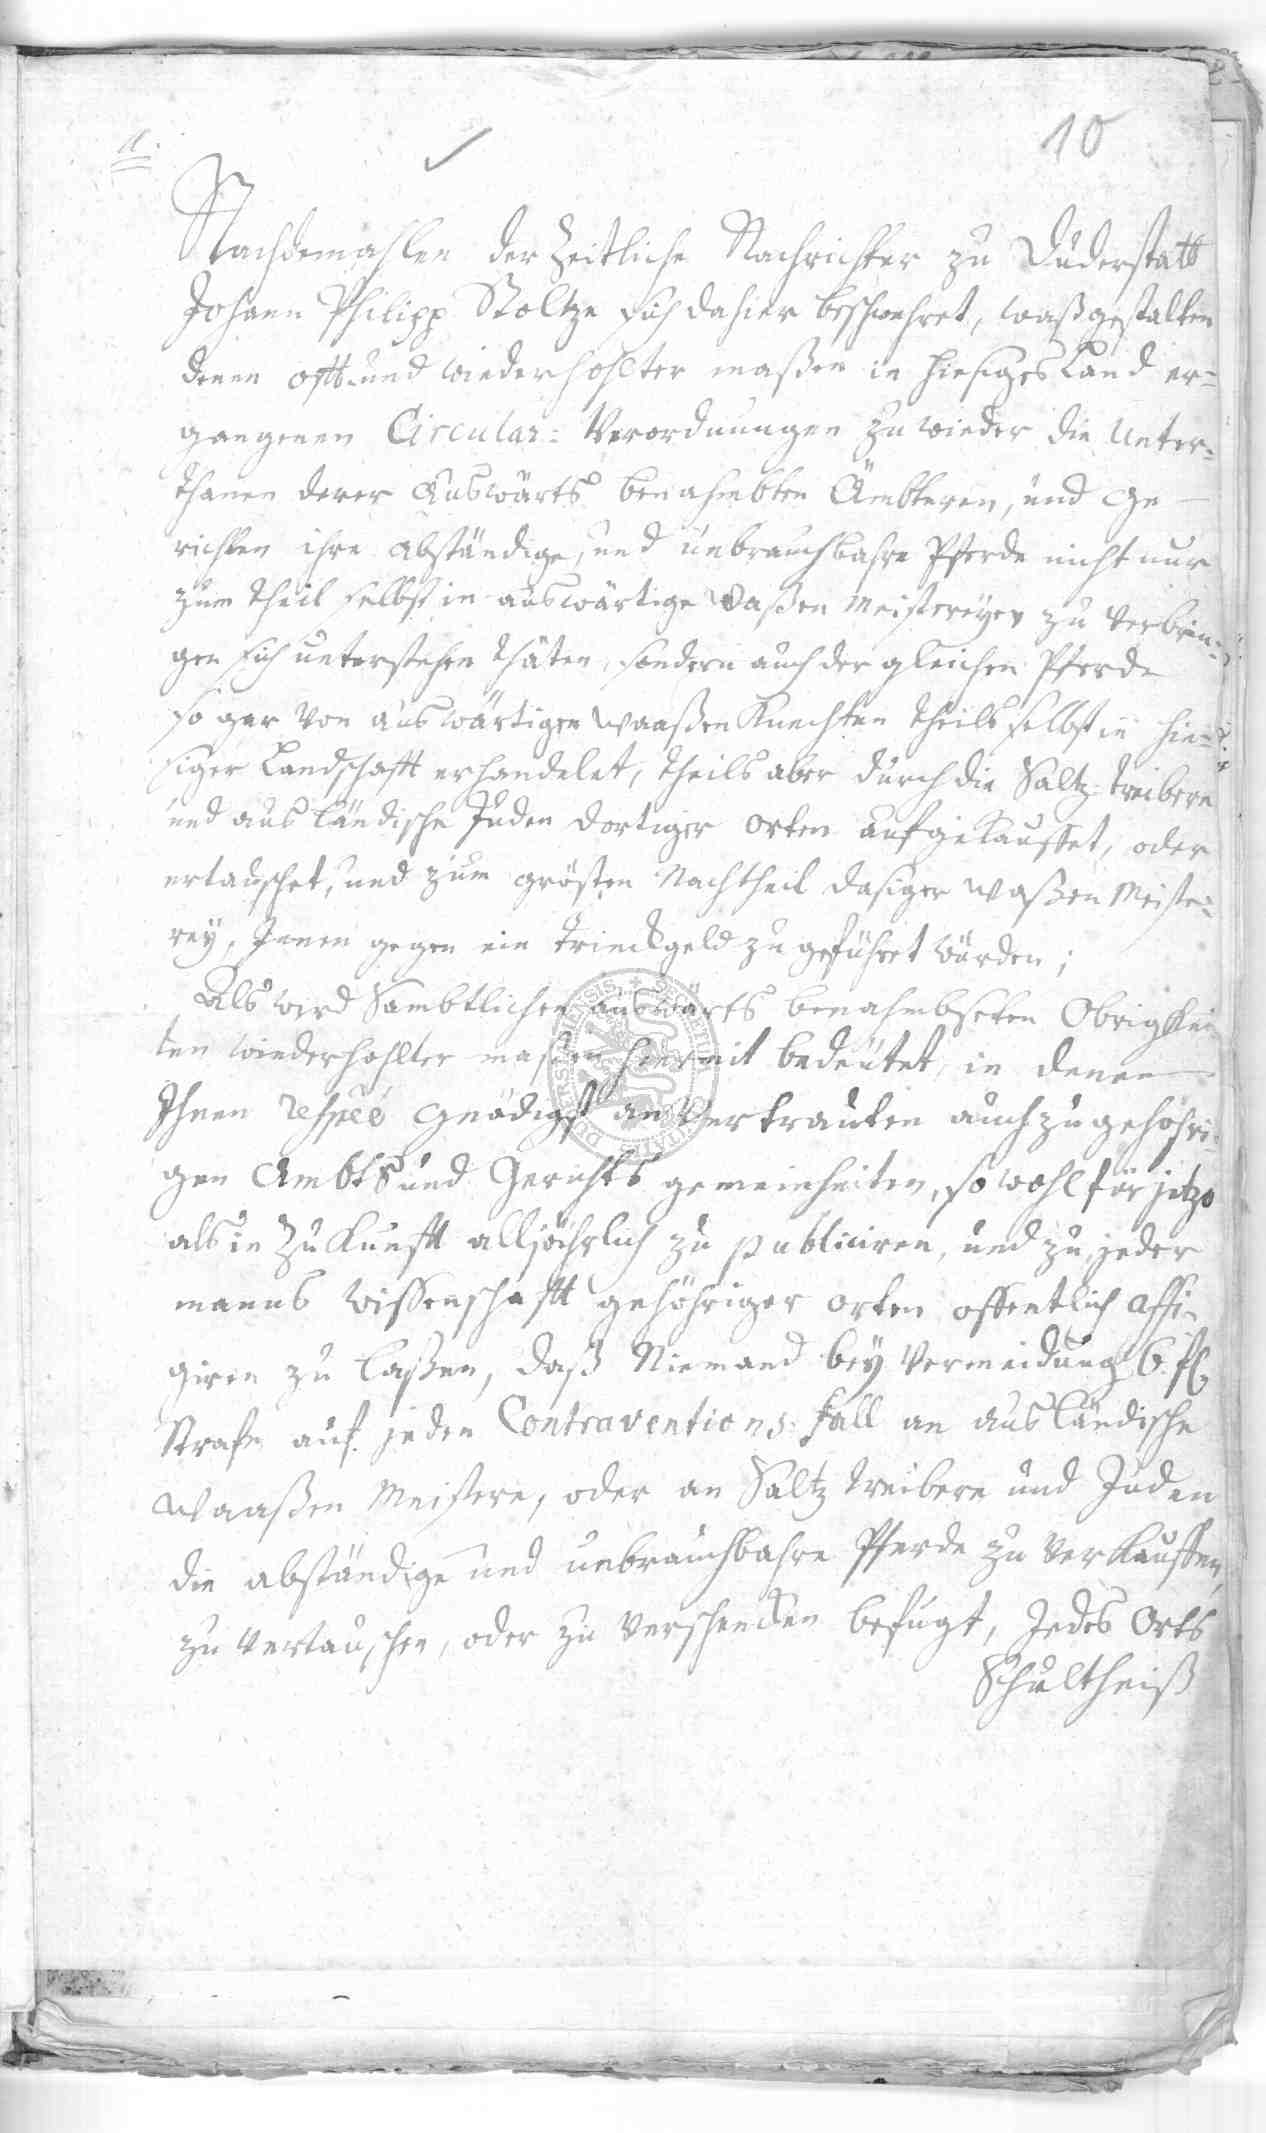 a.
10
Nachdemahlen der Zeitliche Nachrichter zu Duderstatt
Johann Philipp Stoltze sich dahier beschwehret, waßgestalten
denen offt und wiederhohlter maßen in hiesiges Land er=
gangenen Circular= Verordnungen zu wieder die Unter=
thanen derer Auswärts benahmbten Ämbteren, und Ge
richten ihre abständige, und unbrauchbahre Pferde nicht nur
zum theil selbst in auswärtige Waßen Meistereyen zu verbrin=
gen sich unterstehen thäten, sondern auch der gleichen Pferde
so gar von auswärtigen Waaßen Knechten theils selbst in hie=
siger Landschafft erhandelet, theils aber durch die Saltz=treibere
und ausländische Juden dortiger orten aufgekauffet, oder
ertauschet, und zum grösten Nachtheil dasiger Waßen Meiste=
rey, Jenen gegen ein Trinckgeld zugeführet würden;
Als wird Sambtlichen auswärts benahmbseten Obrigkei
ten wiederhohlter maßen hiermit bedeutet, in denen
Ihnen respée Gnädigst anvertrauten auch zugehöhri=
gen Ambts und Gerichts gemeinheiten, so wohl für jetzo
als in Zukunfft alljährlich zu publiciren, und zu jeder
manns wissenschafft gehöhriger orten offentlich affi=
giren zu laßen, daß Niemand bey Vermeidung 6. fl.
Strafe auf jeden Contraventions=fall an ausländische
Waaßen Meistere, oder an Saltz treibere und Juden
die abständige und unbrauchbahre Pferde zu verkauffen,
zu vertauschen, oder zu verschencken befugt, Jedes Orts
Schultheiß